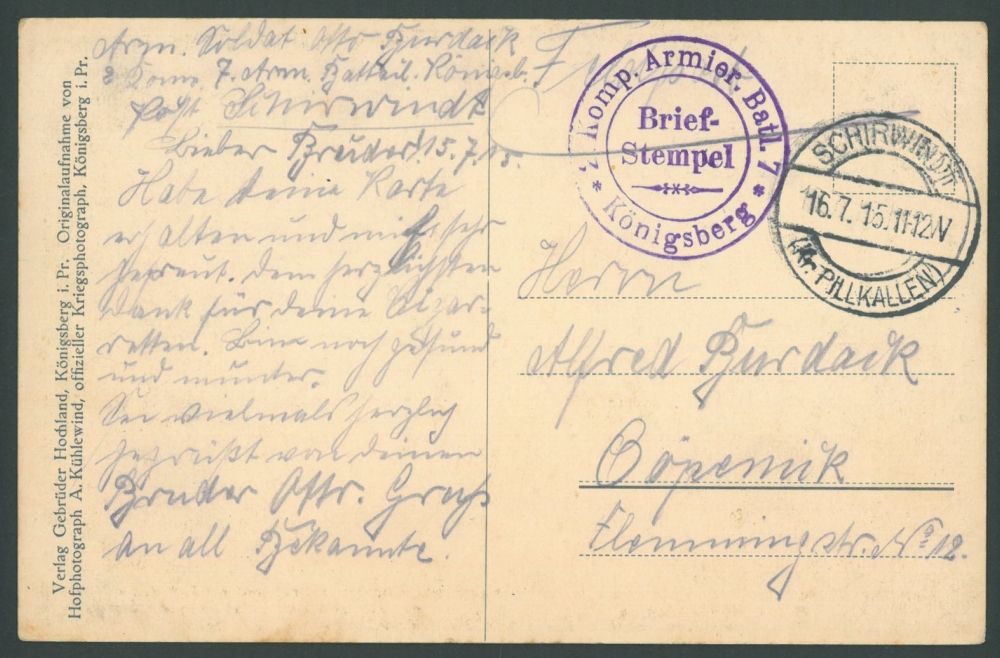 Verlag Gebrüder Hochland, Königsberg i. Pr. Originalaufnahme von
Hofphotograph A. Kühlewind, offizieller Kriegsphotograph, Königsberg i. Pr.
Arm. Soldat Otto Burdack
2 Komp. 7. Arm. Battail. Königsb.
Post Schirwindt
Lieber Bruder! 15.7.15.
Habe deine Karte
erhalten und mich sehr
gefreut. dem herzlichsten
Dank für deine Cigar-
retten. Bin noch gesund
und munter.
Sei vielmals herzlich
gegrüßt von deinem
Bruder Otto. Gruß
an all Bekannte.
2. Komp. Armier. Batl. 7
Brief-
Stempel
* Königsberg *
SCHIRWINDT
16.7.15.11-12V
(Kr. PILLKALLEN)
Herrn
Alfred Burdack
Cöpenick
Flemmingstr. No 12.